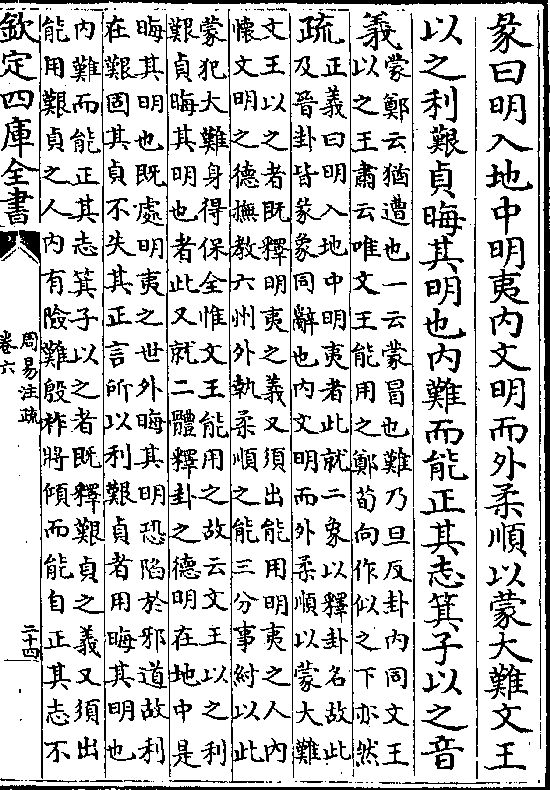 彖曰明入地中明夷内文明而外柔順以蒙大難文王
以之利艱貞晦其明也内難而能正其志箕子以之音
義蒙鄭云猶遭也一云蒙冒也難乃旦反卦内同文王
以之王肅云唯文王能用之鄭荀向作似之下亦然
疏正義曰明入地中明夷者此就二象以釋卦名故此
及晉卦皆彖象同辭也内文明而外柔順以蒙大難
文王以之者既釋明夷之義又須出能用明夷之人内
懷文明之德撫教六州外執柔順之能三分事紂以此
蒙犯大難身得保全惟文王能用之故云文王以之利
艱貞晦其明也者此又就二體釋卦之德明在地中是
晦其明也既處明夷之世外晦其明恐陷於邪道故利
在艱固其貞不失其正言所以利艱貞者用晦其明也
内難而能正其志箕子以之者既釋艱貞之義又須出
能用艱貞之人内有險難殷祚將傾而能自正其志不
欽定四庫全書
周易注疏
卷六
二十四